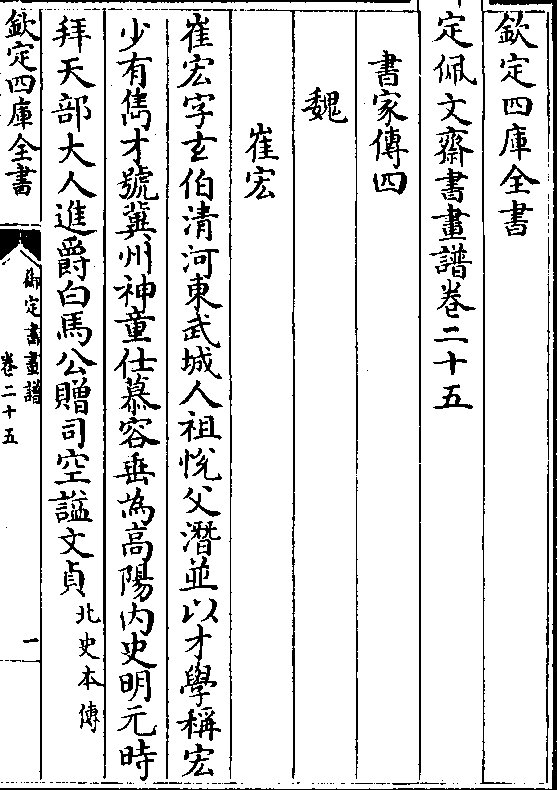 欽定四庫全書
定佩文齋書畫譜卷二十五
書家傳四
魏
崔宏
崔宏字玄伯清河東武城人祖悅父潛並以才學稱宏
少有雋才號冀州神童仕慕容垂為高陽内史明元時
拜天部大人進爵白馬公贈司空諡文貞北史本傳
欽定四庫全書
御定書畫譜
卷二十五
一